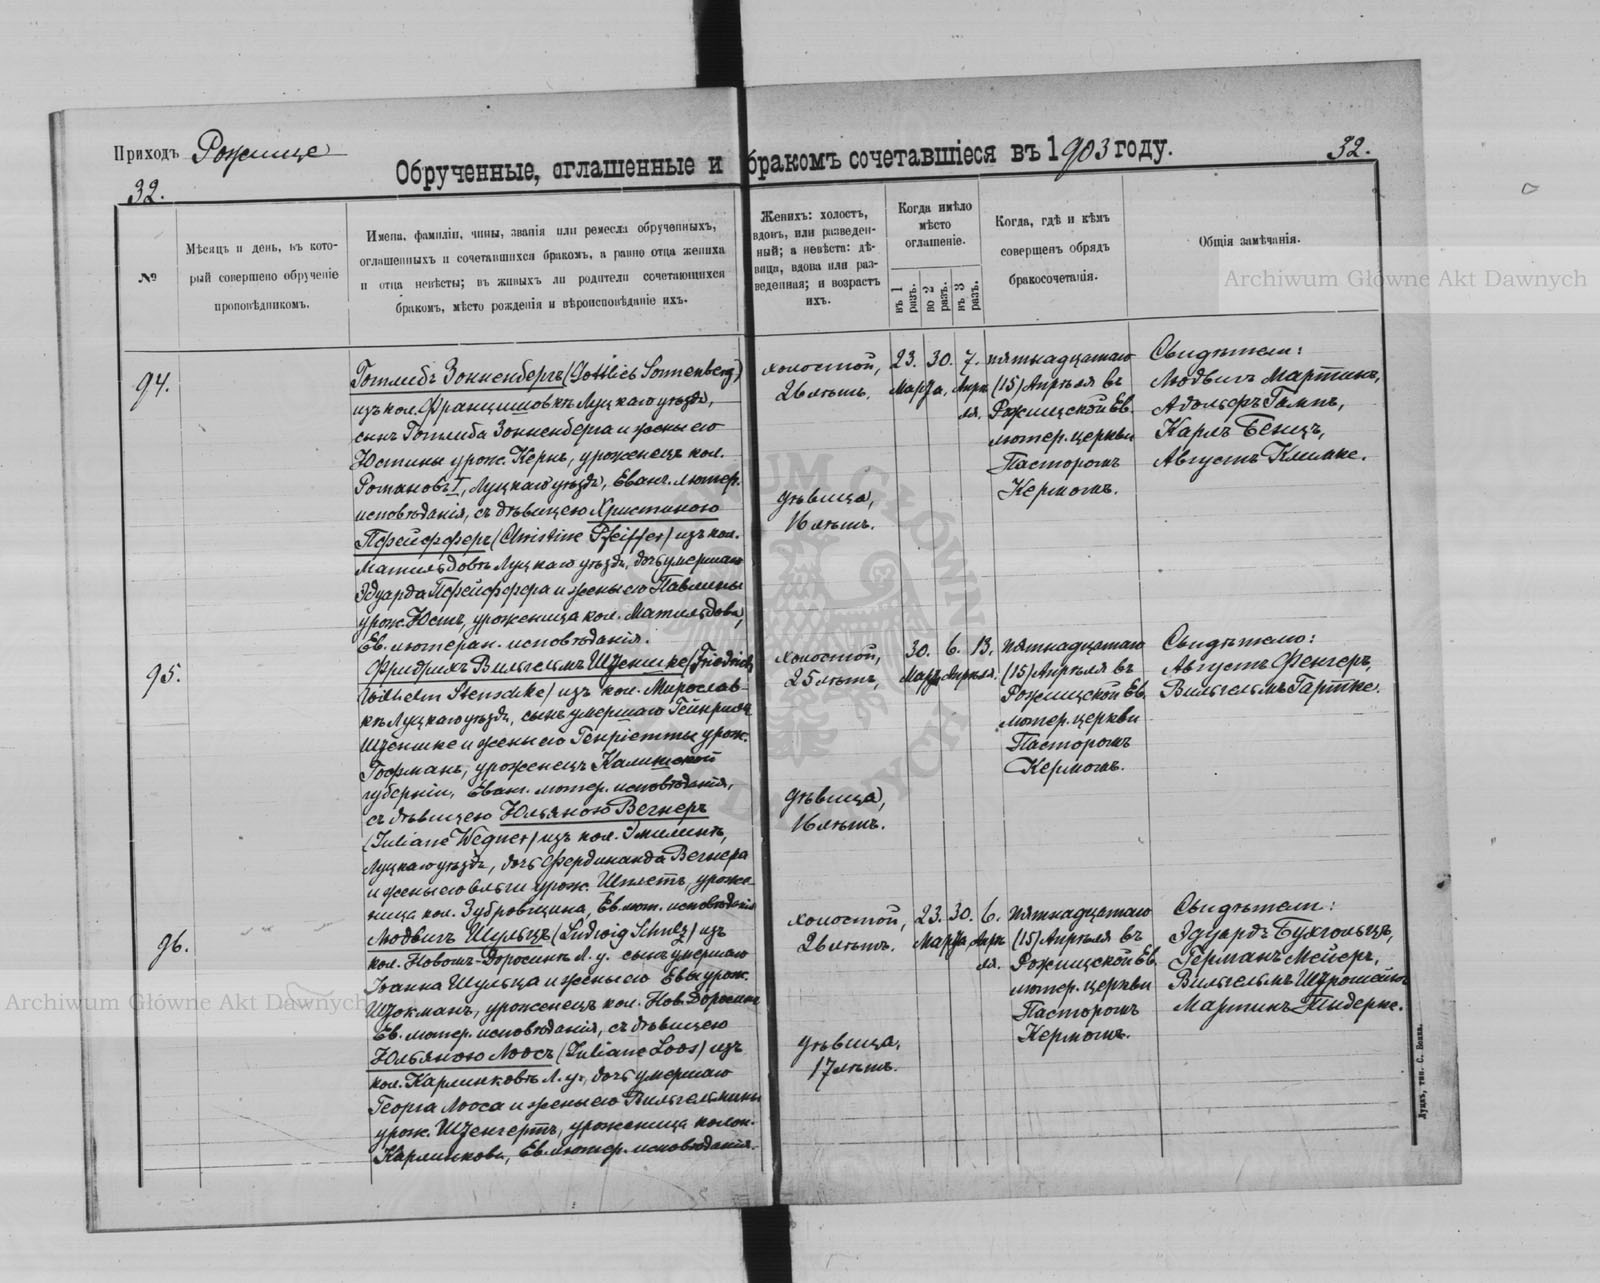 Приходъ Рожище
Обрученные, оглашенные и бракомъ сочетавшіеся въ 1903 году.
32.
32.
№
Мѣсяцъ и день, въ кото-
рый совершено обрученіе
проповѣдникомъ.
Имена, фамиліи, чины, званія или ремесла обрученныхъ,
оглашенныхъ и сочетавшихся бракомъ, а равно отца жениха
и отца невѣсты; въ живыхъ ли родители сочетающихся
бракомъ, мѣсто рожденія и вѣроисповѣданіе ихъ.
Женихъ: холостъ,
вдовъ, или разведен-
ный; а невѣста: дѣ-
вица, вдова или раз-
веденная; и возрастъ
ихъ.
Когда имѣло
мѣсто
оглашеніе.
въ 1
разъ.
во 2
разъ.
въ 3
разъ.
Когда, гдѣ и кѣмъ
совершенъ обрядъ
бракосочетанія.
Общія замѣчанія.
Archiwum Główne Akt Dawnych
94.
Готлибъ Зонненбергъ (Gottlieb Sonnenberg)
изъ кол. Францишовкѣ Луцкаго уѣзда,
сынъ Готлиба Зонненберга и жены его
Юстины урож. Кернъ, уроженецъ кол.
Романовъ I, Луцкаго уѣзда, Еванг. лютер.
исповѣданія, съ дѣвицею Христиною
Пфейфферъ (Christine Pfeiffer) изъ кол.
Матильдовъ Луцкаго уѣзда, дочь умершаго
Эдуарда Пфейффера и жены его Павлины
урож. Юстъ, уроженица кол. Матильдова,
Ев. лютеран. исповѣданія.
холостой,
26 лѣтъ.
дѣвица,
16 лѣтъ.
23. 30. 7.
Марта. Апрѣ
ля.
пятнадцатаго
(15) Апрѣля въ
Рожищской Ев.
лютер. церкви
Пасторомъ
Кермомъ.
Свидѣтели:
Людвигъ Мартинъ,
Адольфъ Гампъ,
Карлъ Бенцъ,
Августъ Климке.
95.
Фридрихъ Вильгельмъ Штеншке (Friedrich
Wilhelm Stenschke) изъ кол. Мирослав-
кѣ Луцкаго уѣзда, сынъ умершаго Гейнриха
Штеншке и жены его Генріетты урож.
Гофманъ, уроженецъ Калишской
губерніи, Еванг. лютер. исповѣданія,
съ дѣвицею Юльяною Вегнеръ
(Juliane Wegner) изъ кол. Эмилинъ,
Луцкаго уѣзда, дочь Фердинанда Вегнера
и жены его Ольги урож. Шплетъ, уроже-
ница кол. Зубровщина, Ев. лют. исповѣданія
холостой,
25 лѣтъ,
дѣвица,
16 лѣтъ.
30. 6. 13.
Марта Апрѣля.
пятнадцатаго
(15) Апрѣля въ
Рожищской Ев.
лютер. церкви
Пасторомъ
Кермомъ.
Свидѣтели:
Августъ Фенгеръ,
Вильгельмъ Гартке.
96.
Людвигъ Шульцъ (Ludwig Schulz) изъ
кол. Новомъ-Доросинѣ Л. у. сынъ умершаго
Іоанна Шульца и жены его Евы урож.
Штокманъ, уроженецъ кол. Нов. Доросинъ
Ев. лютер. исповѣданія, съ дѣвицею
Юльяною Лоосъ (Juliane Loos) изъ
кол. Карлинковѣ Л. у., дочь умершаго
Георга Лооса и жены его Вильгельмины
урож. Штенгертъ, уроженица колон.
Карлинкова, Ев. лютер. исповѣданія.
холостой,
26 лѣтъ.
дѣвица,
17 лѣтъ.
23. 30. 6.
Марта Апрѣ
ля.
пятнадцатаго
(15) Апрѣля въ
Рожищской Ев.
лютер. церкви
Пасторомъ
Кермомъ.
Свидѣтели:
Эдуардъ Бухгольцъ,
Германъ Мейеръ,
Вильгельмъ
Мартинъ Тыдерке.
Archiwum Główne Akt Dawnych
Луцкъ, тип. С. Бокал.